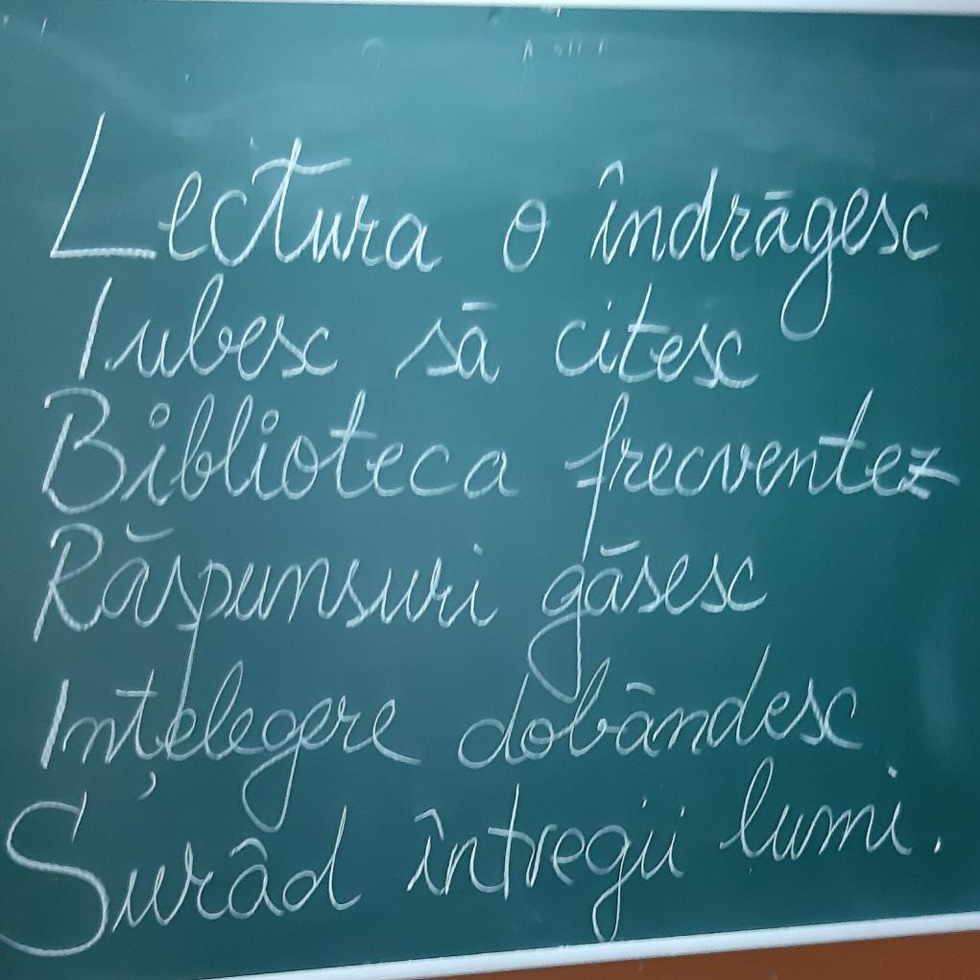 Lectura o îndrăgesc
Iubesc să citesc
Biblioteca frecventez
Răspunsuri găsesc
Ințelegere dobândesc
Surâd întregii lumi.